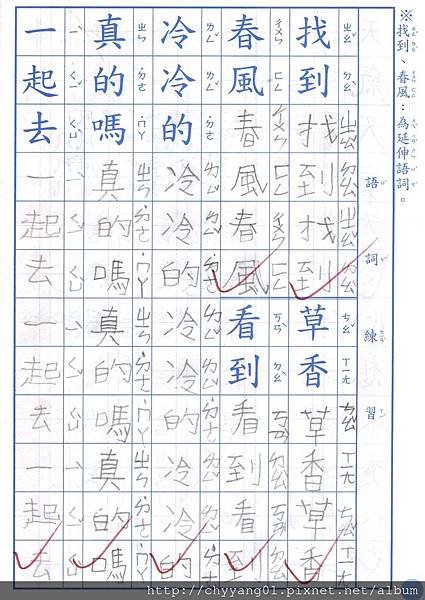 ※找到、春風：為延伸語詞。
語詞練習
找到找到找到草香草香草香
ㄓㄠˇ ㄉㄠˋ ㄓㄠˇ ㄉㄠˋ ㄓㄠˇ ㄉㄠˋ ㄘㄠˇ ㄒㄧㄤ ㄘㄠˇ ㄒㄧㄤ ㄘㄠˇ ㄒㄧㄤ
春風春風春風看到看到看到
ㄔㄨㄣ ㄈㄥ ㄔㄨㄣ ㄈㄥ ㄔㄨㄣ ㄈㄥ ㄎㄢˋ ㄉㄠˋ ㄎㄢˋ ㄉㄠˋ ㄎㄢˋ ㄉㄠˋ
冷冷的冷冷的冷冷的冷冷的
ㄌㄥˇ ㄌㄥˇ ˙ㄉㄜ ㄌㄥˇ ㄌㄥˇ ˙ㄉㄜ ㄌㄥˇ ㄌㄥˇ ˙ㄉㄜ ㄌㄥˇ ㄌㄥˇ ˙ㄉㄜ
真的嗎真的嗎真的嗎真的嗎
ㄓㄣ ˙ㄉㄜ ˙ㄇㄚ ㄓㄣ ˙ㄉㄜ ˙ㄇㄚ ㄓㄣ ˙ㄉㄜ ˙ㄇㄚ ㄓㄣ ˙ㄉㄜ ˙ㄇㄚ
一起去一起去一起去一起去
ㄧ ㄑㄧˇ ㄑㄩˋ ㄧ ㄑㄧˇ ㄑㄩˋ ㄧ ㄑㄧˇ ㄑㄩˋ ㄧ ㄑㄧˇ ㄑㄩˋ
http://chyyang01.pixnet.net/album